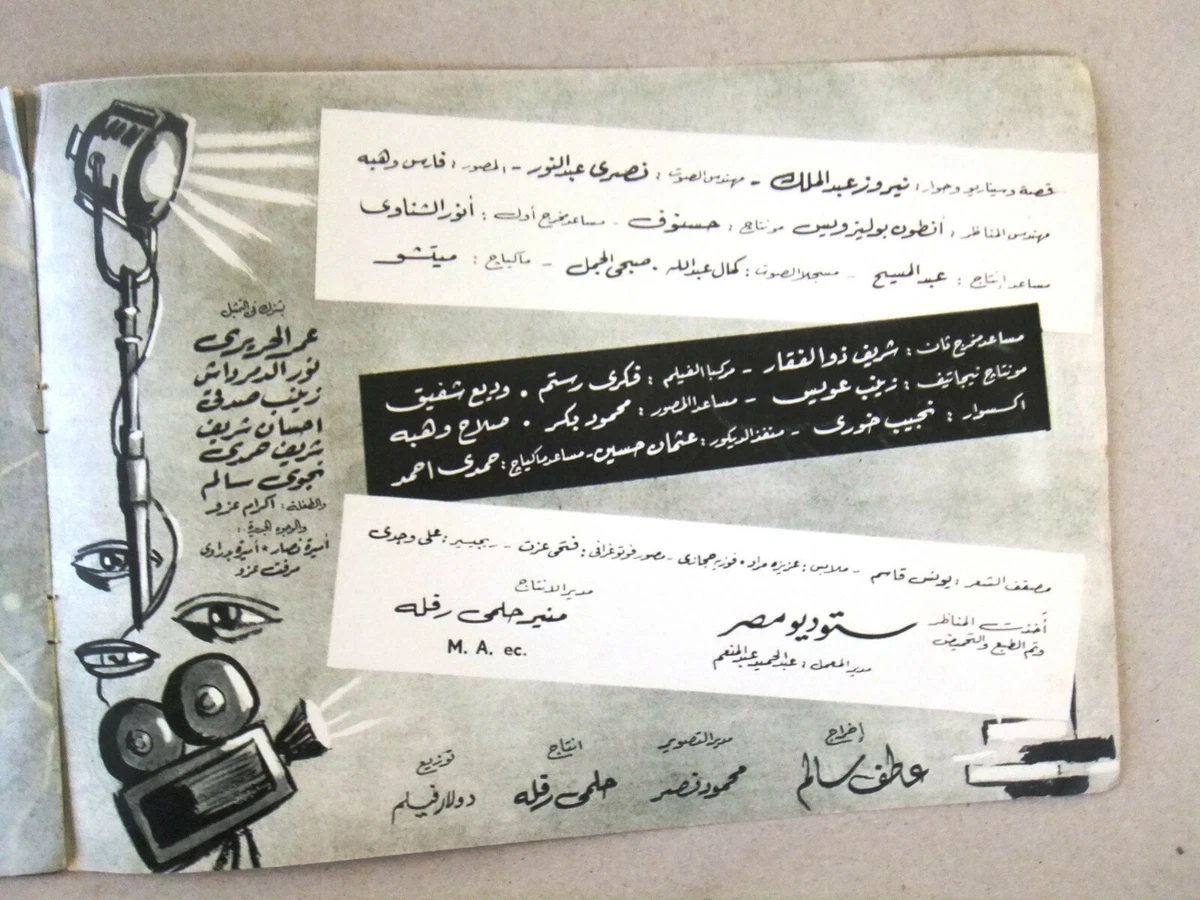 قصة وسيناريو وحوار : نيروز عبد الملك - مهندس الصوت : نصرى عبد النور - المصور : فارس وهبه
مهندس المناظر : أنطون بوليزويس مونتاج : حسنوف - مساعد مخرج أول : أنور الشناوى
مساعد إنتاج : عبد المسيح - مسجلا الصوت : كمال عبد الله . صبحى الجمل - ماكياج : ميتشو
مساعد مخرج ثان : شريف ذو الفقار - مركبا الفيلم : فكرى رستم . وديع شفيق
مونتاج نيجاتيف : زينب عويس - مساعد المصور : محمود بكر . صلاح وهبه
اكسسوار : نجيب خورى - منفذ الديكور : عثمان حسين - مساعد ماكياج : حمدى احمد
مصفف الشعر : يونس قاسم - ملابس : عزيزه مراد • فوزيه حجازى - مصور فوتوغرافى : فتحى عزت - ريجيسير : على وجدى
أخذت المناظر
وتم الطبع والتحميض
ستوديو مصر
مدير المعمل : عبد الحميد عبد المنعم
مدير الانتاج
منير حلمى رفله
M. A. ec.
يشترك فى التمثيل
عمر الحريرى
نور الدمرداش
زينب صدقى
احسان شريف
شريف حمدى
نجوى سالم
والطفلة : اكرام عزو
والوجوه الجديدة :
أميرة نصار • أميرة بدراوى
مرفت عزو
إخراج
عاطف سالم
مدير التصوير
محمود نصر
انتاج
حلمى رفله
توزيع
دولار فيلم